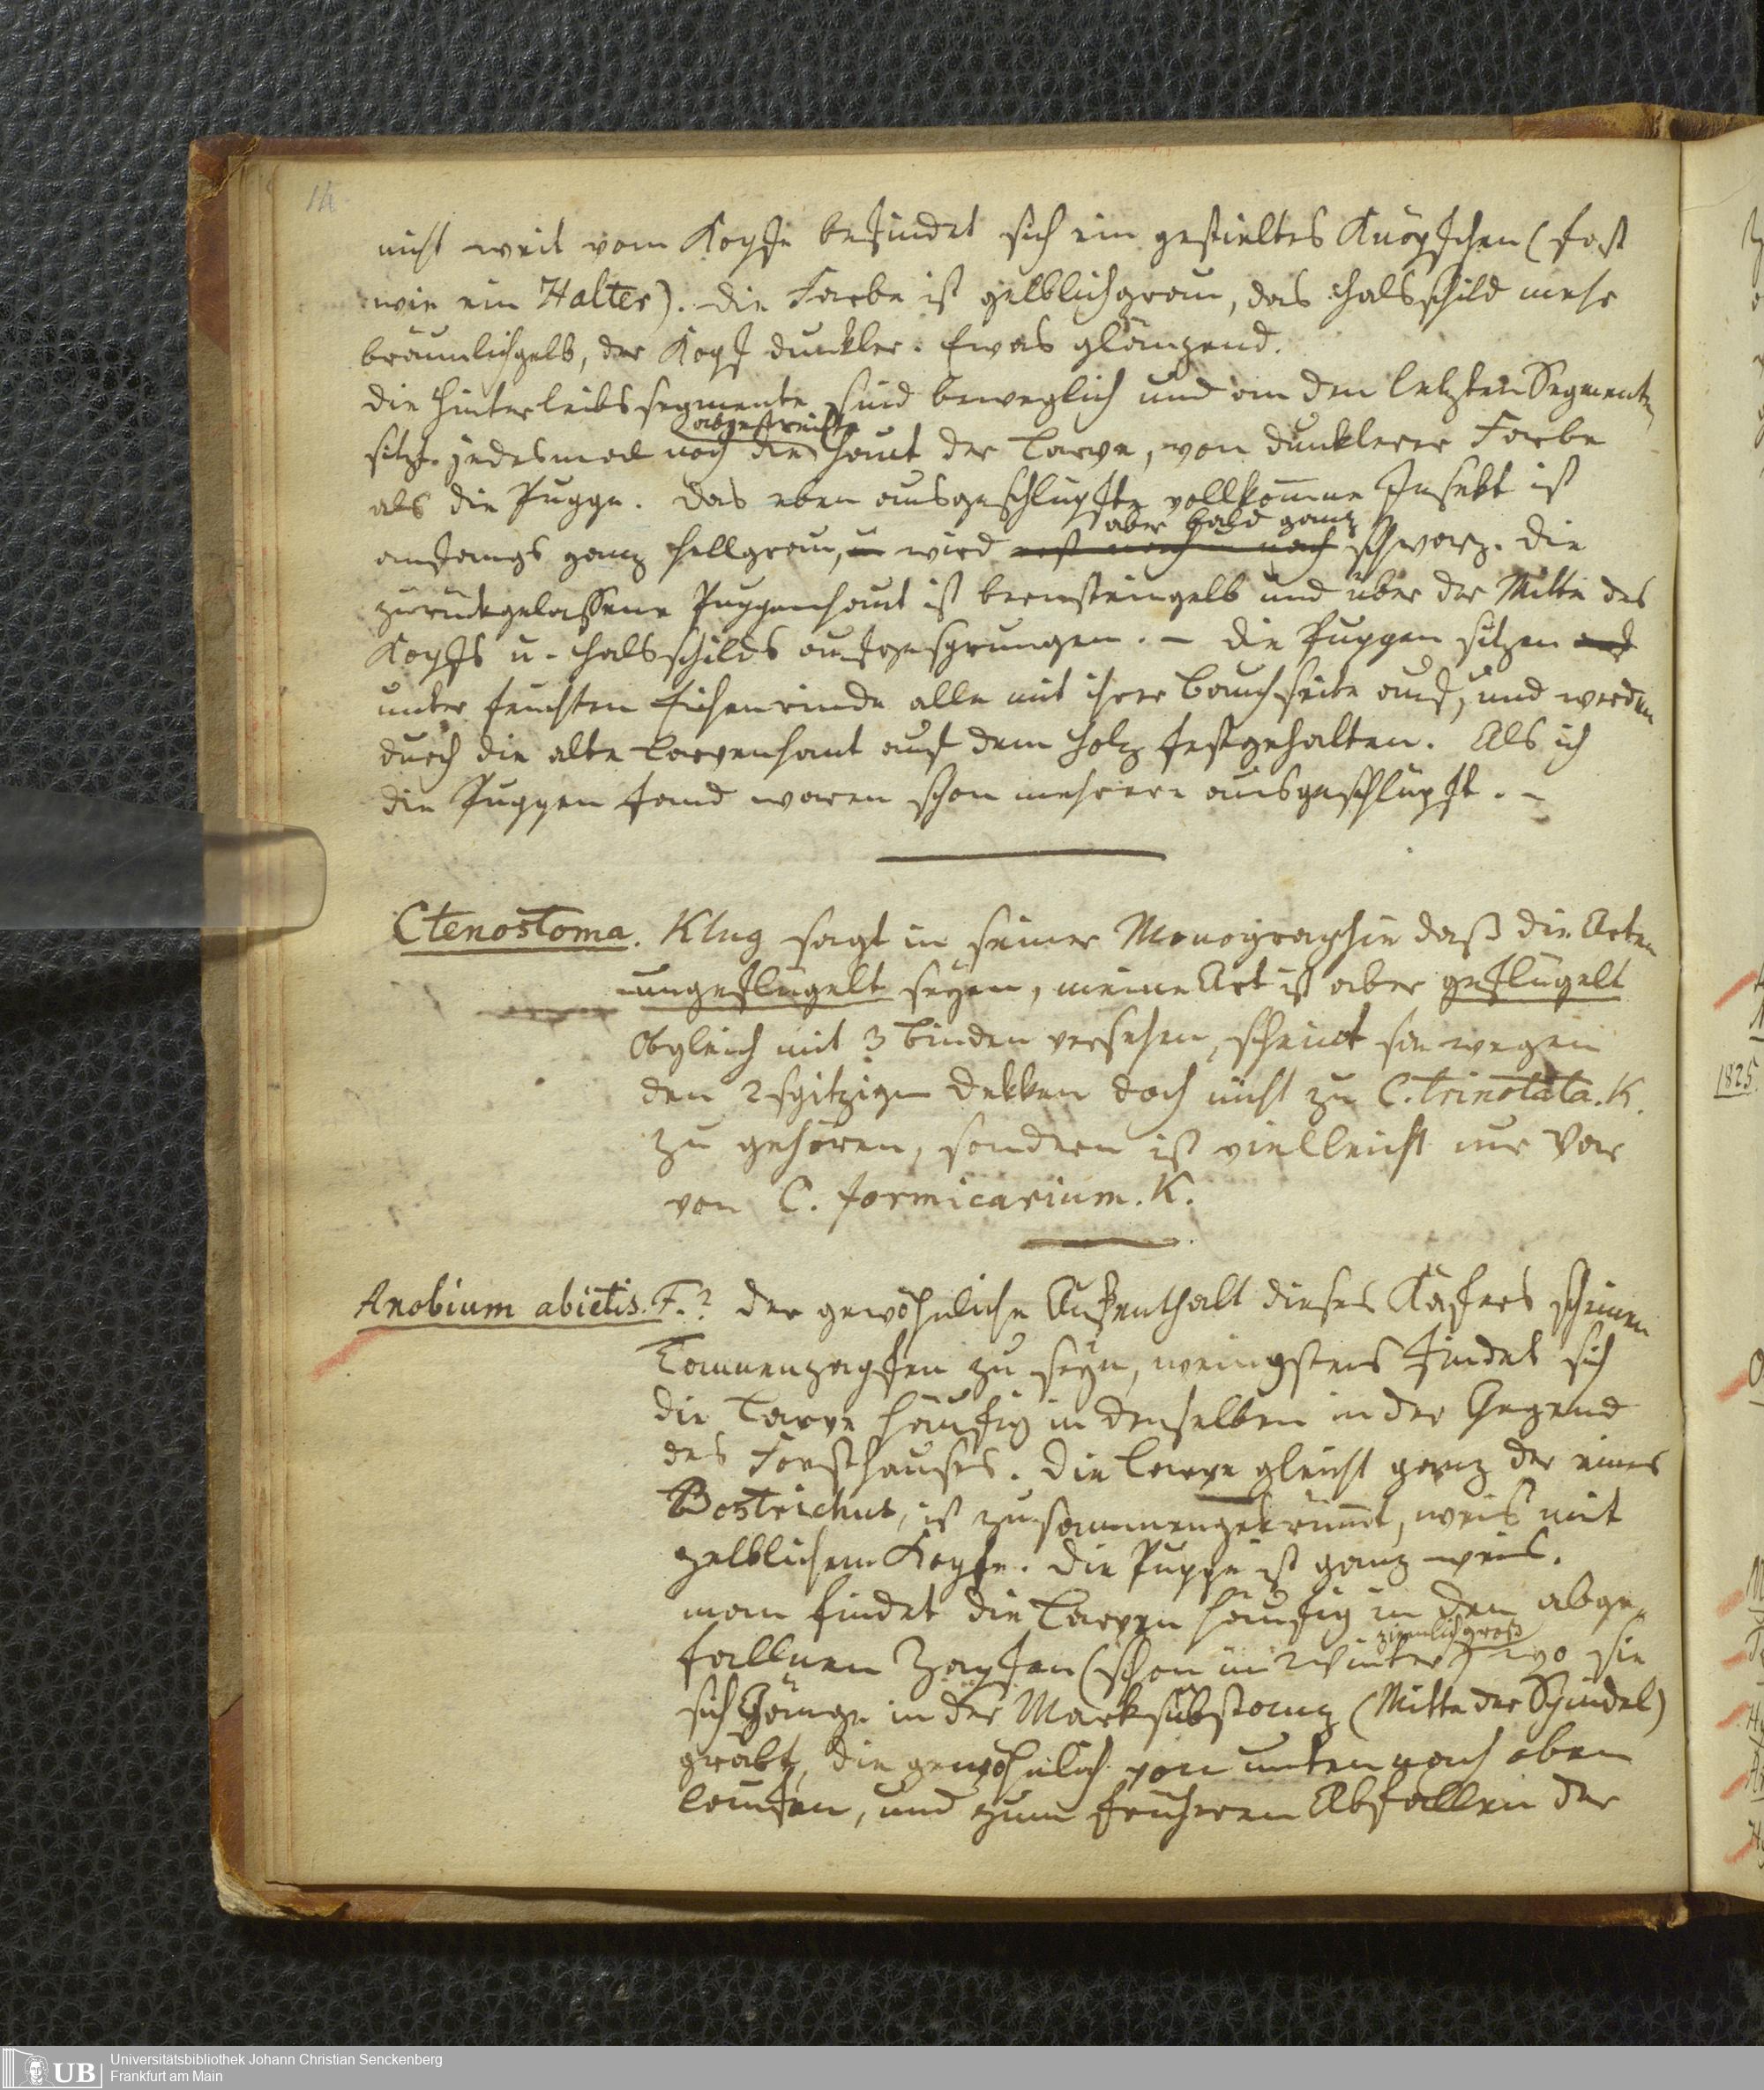 14
nicht weit vom Kopfe befindet sich ein gestieltes Knöpfchen (fast
wie ein Halter). Die Farbe ist gelblichgrau, das Halsschild mehr
bräunlichgelb, der Kopf dunkler. Etwas glänzend.
die Hinterleibssegmente sind beweglich und an den letzten Segmenten
abgestreifte
sitzt jedesmal noch die Haut der Larve, von dunklerer Farbe
als die Puppe. Das eben ausgeschlüpfte vollkom̅ne Insekt ist
aber bald ganz
anfangs ganz hellgrau, u wird erst nach u nach schwarz. Die
zurückgelassene Puppenhaut ist bernsteingelb und über der Mitte des
Kopfs u. Halsschilds aufgesprungen. – Die Puppen sitzen auf
unter feuchten Eichenrinde alle mit ihrer Bauchseite auf, und werden
durch die alte Larvenhaut auf dem Holz festgehalten. Als ich
die Puppen fand waren schon mehrere ausgeschlüpft. –
Ctenostoma. Klug sagt in seiner Monographie daß die Arten
ungeflügelt seyen, meine Art ist aber geflügelt
Obgleich mit 3 Binden versehen, scheint sie wegen
den 2spitzigen Dekken doch nicht zu C. trinotata. K.
zu gehören, sondern ist vielleicht nur Var
von C. formicarium. K.
Anobium abietis. F.? Der gewöhnliche Aufenthalt dieses Käfers scheinen
Tannenzapfen zu seyn, wenigstens findet sich
die Larve häufig in denselben in der Gegend
des Forsthauses. Die Larve gleicht ganz der eines
Bostrichus, ist zusammengekrüm̅t, weis mit
gelblichem Kopfe. Die Puppe ist ganz weis.
man findet die Larven häufig in den abge-
ziemlich groß
fallnen Zapfen (schon im Winter) wo sie
sich Gänge in der Marksubstanz (Mitte der Spindel)
gräbt, die gewöhnlich von unten nach oben
laufen, und zum früheren Abfallen der
1825
UB
Universitätsbibliothek Johann Christian Senckenberg
Frankfurt am Main